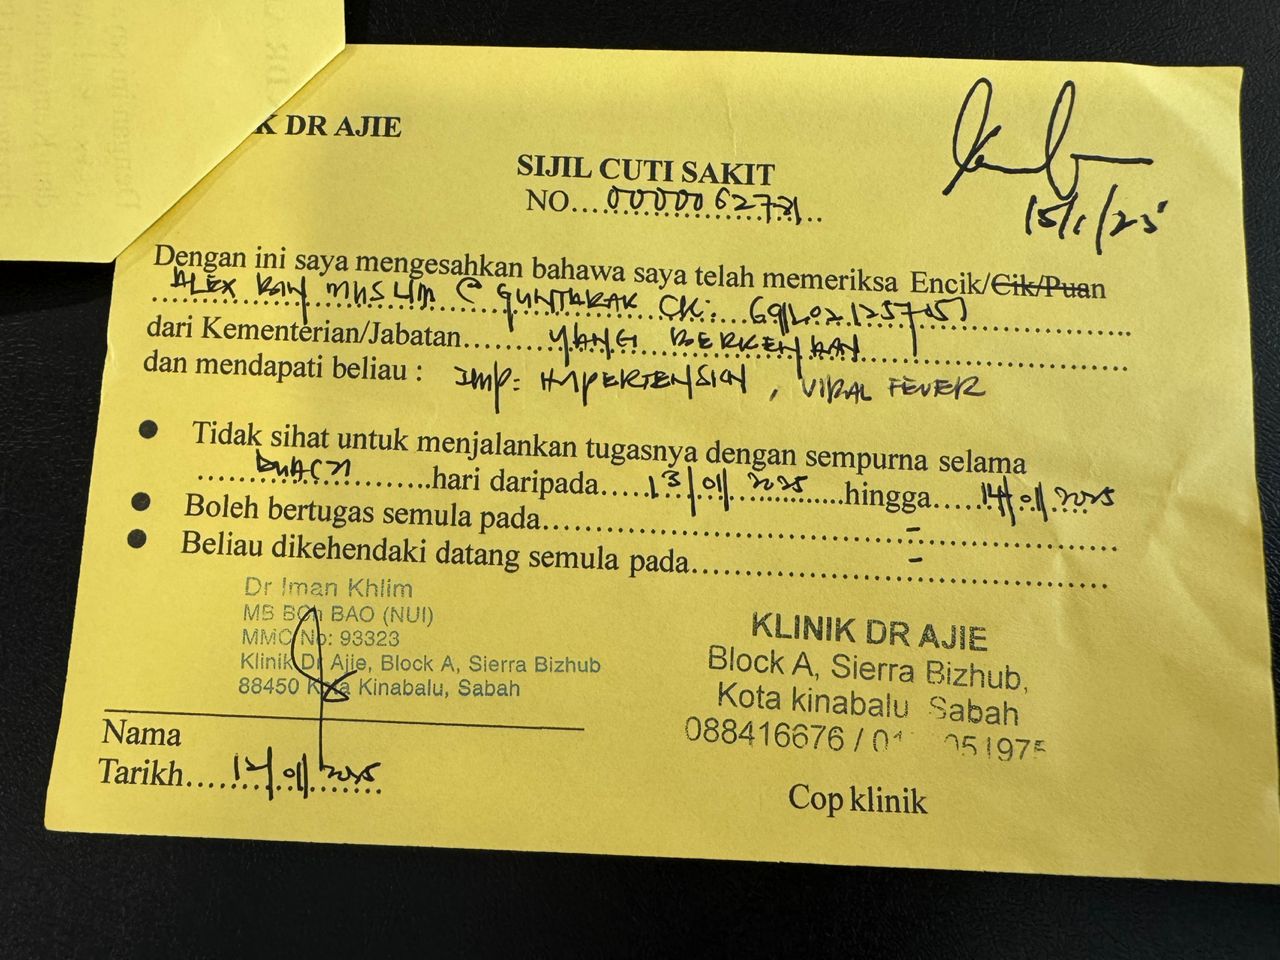 K DR AJIE
SIJIL CUTI SAKIT
NO....0000062731
15/1/25
Dengan ini saya mengesahkan bahawa saya telah memeriksa Encik/Cik/Puan
ALEX MUSLIM @ GUNTARAK
dari Kementerian/Jabatan.......YANG BERKENAAN
dan mendapati beliau : IMP: HYPERTENSION, VIRAL FEVER
Tidak sihat untuk menjalankan tugasnya dengan sempurna selama
DUA(2) hari daripada 13/01/2025 hingga 14/01/2025
Boleh bertugas semula pada -
Beliau dikehendaki datang semula pada -
Dr Iman Khlim
MB BCh BAO (NUI)
MMC No: 93323
Klinik Dr Ajie, Block A, Sierra Bizhub
88450 Kota Kinabalu, Sabah
KLINIK DR AJIE
Block A, Sierra Bizhub,
Kota kinabalu Sabah
088416676 /
Nama
Tarikh 12/01/2025
Cop klinik